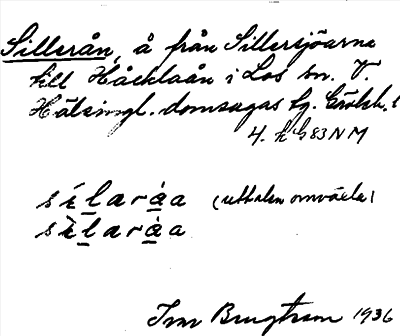 Sillerån, å från Sillersjöarna
till Håcklaån i Los sn. V.
Hälsingl. domsagas tg. Gävleb. l
4. 83 NM
sílaråa (uttalen omväxla)
sìlaråa
Ivar Bengtsson 1936